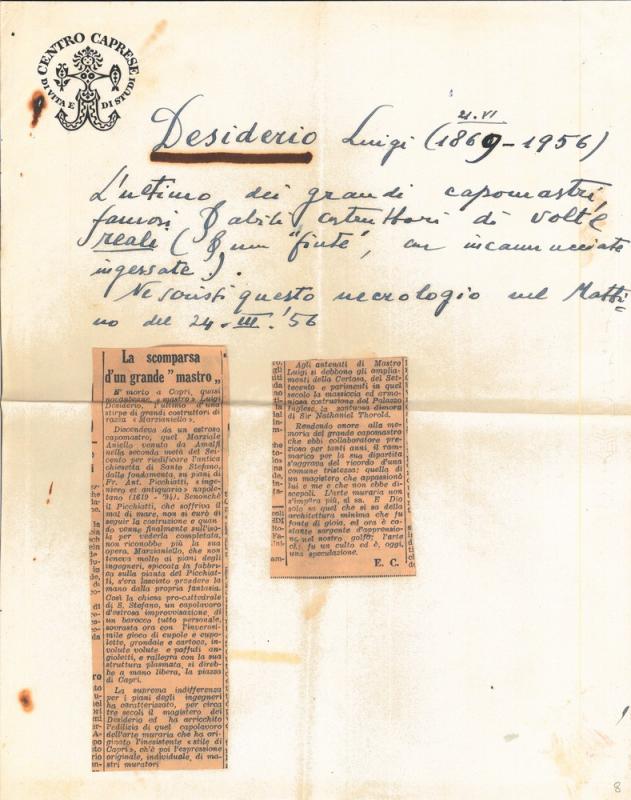 CENTRO CAPRESE
DI VITA E DI STUDI
21.VI
Desiderio Luigi (1869-1956)
L'ultimo dei grandi capomastri,
famosi & abili costruttori di volte
reale (& non "finte", con incannucciate
ingessate).
Ne scrissi questo necrologio nel Matti=
no del 24-III.'56
La scomparsa
d'un grande "mastro„
E' morto a Capri, quasi
novantenne, «mastro» Luigi
Desiderio, l'ultimo d'una
stirpe di grandi costruttori di
razza «Marzianiello».
Discendeva da un estroso
capomastro, quel Marziale
Aniello venuto da Amalfi
nella seconda metà del Sei-
cento per riedificare l'antica
chiesetta di Santo Stefano,
dalle fondamenta, su piani di
Fr. Ant. Picchiatti, «inge-
niero et antiquario» napole-
tano (1619 - '94). Senonchè
il Picchiatti, che soffriva il
mal di mare, non si curò di
seguir la costruzione e quan-
do venne finalmente sull'iso-
la per vederla completata,
non riconobbe più la sua
opera. Marzianiello, che non
teneva molto ai piani degli
ingegneri, spiccata la fabbri-
ca sulla pianta del Picchiat-
ti, s'era lasciato prendere la
mano dalla propria fantasia.
Così la chiesa pro-cattedrale
di S. Stefano, un capolavoro
d'estrosa improvvisazione, di
un barocco tutto personale,
sovrasta ora con l'inverosi-
mile gioco di cupole e cupo-
lette, grondaie e cartocci, in-
volute volute e paffuti an-
gioletti, e rallegra con la sua
struttura plasmata, si direb-
be a mano libera, la piazza
di Capri.
La suprema indifferenza
per i piani degli ingegneri
ha caratterizzato, per circa
tre secoli il magistero dei
Desiderio ed ha arricchito
l'edilizia di quel capolavoro
dell'arte muraria che ha ori-
ginato l'inesistente «stile di
Capri», ch'è poi l'espressione
originale, individuale, di ma-
stri muratori
Agli antenati di Mastro
Luigi si debbono gli amplia-
menti della Certosa, dei Set-
tecento e parimenti in quel
secolo la massiccia ed armo-
niosa costruzione del Palazzo
Inglese, la sontuosa dimora
di Sir Nathaniel Thorold.
Rendendo onore alla me-
moria del grande capomastro
che ebbi collaboratore pre-
zioso per tanti anni, il ram-
marico per la sua dipartita
s'aggrava del ricordo d'un
comune tristezza: quella di
un magistero che appassionò
lui e me e che non ebbe di-
scepoli. L'arte muraria non
s'impara più, si sa. E non
solo se quel che si sa della
architettura minima che fu
fonte di gioia, ed ora è co-
stante sorgente d'apprensio-
ne nel nostro golfo; l'arte
che fu un culto ed è, oggi,
una speculazione.
E. C.
8